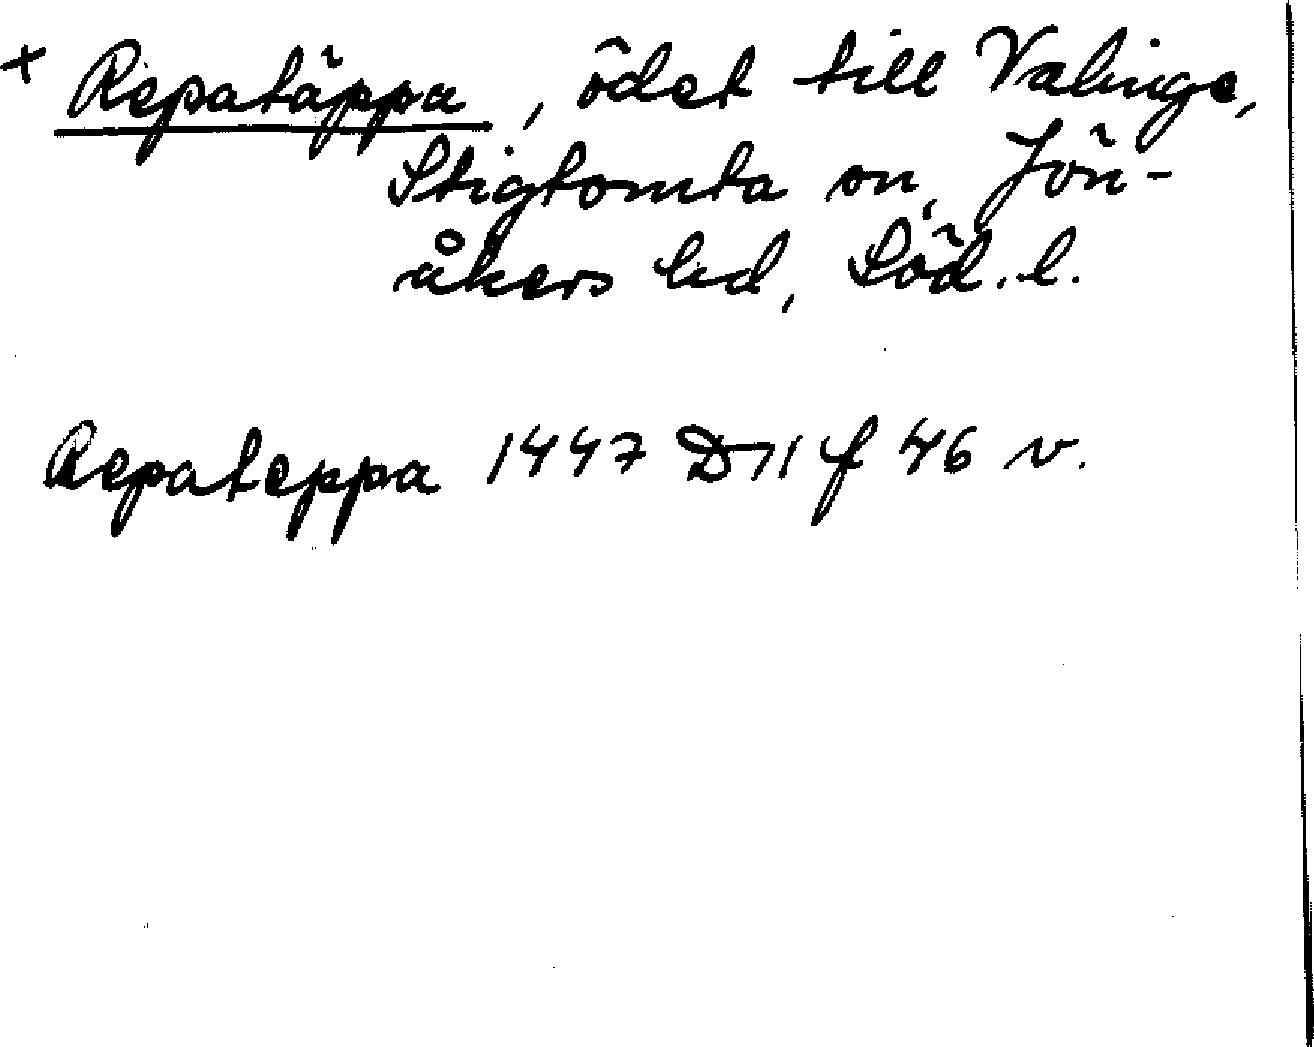 + Repatäppa, ödet till Valinge,
Stigtomta sn, Jön-
åkers hd, Söd. l.
Repateppa 1447 D 11 f 46 v.